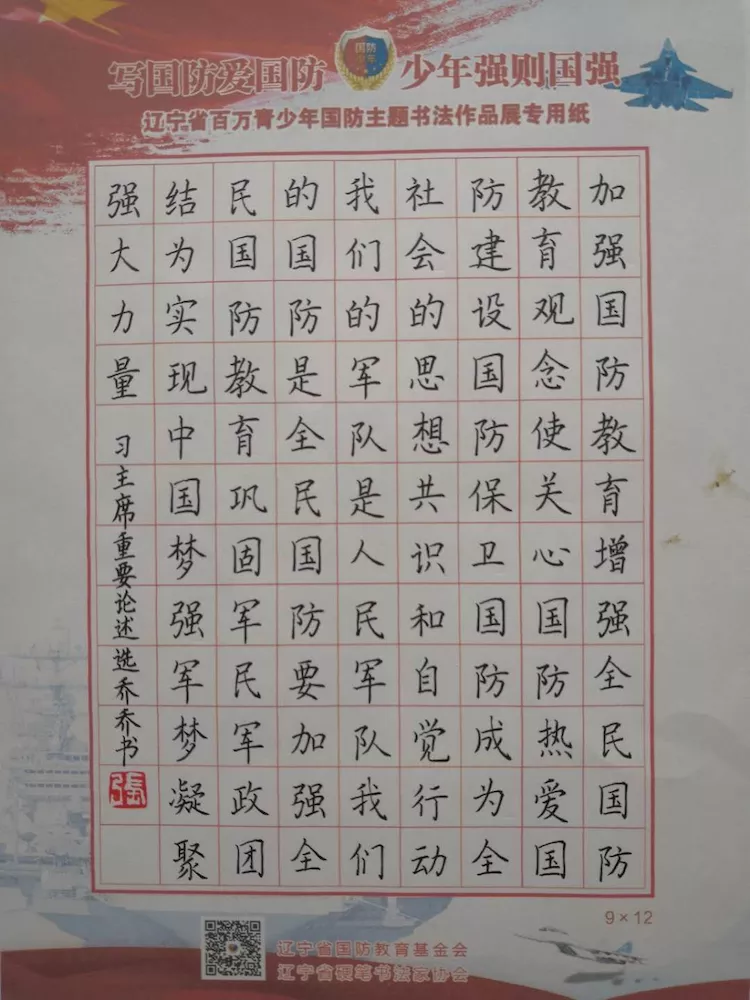 写国防爱国防 少年强则国强
国防
少年
辽宁省百万青少年国防主题书法作品展专用纸
加强国防教育增强全民国防
教育观念使关心国防热爱国
防建设国防保卫国防成为全
社会的思想共识和自觉行动
我们的军队是人民军队我们
的国防是全民国防要加强全
民国防教育巩固军民军政团
结为实现中国梦强军梦凝聚
强大力量 习主席重要论述选乔乔书
張
9×12
辽宁省国防教育基金会
辽宁省硬笔书法家协会